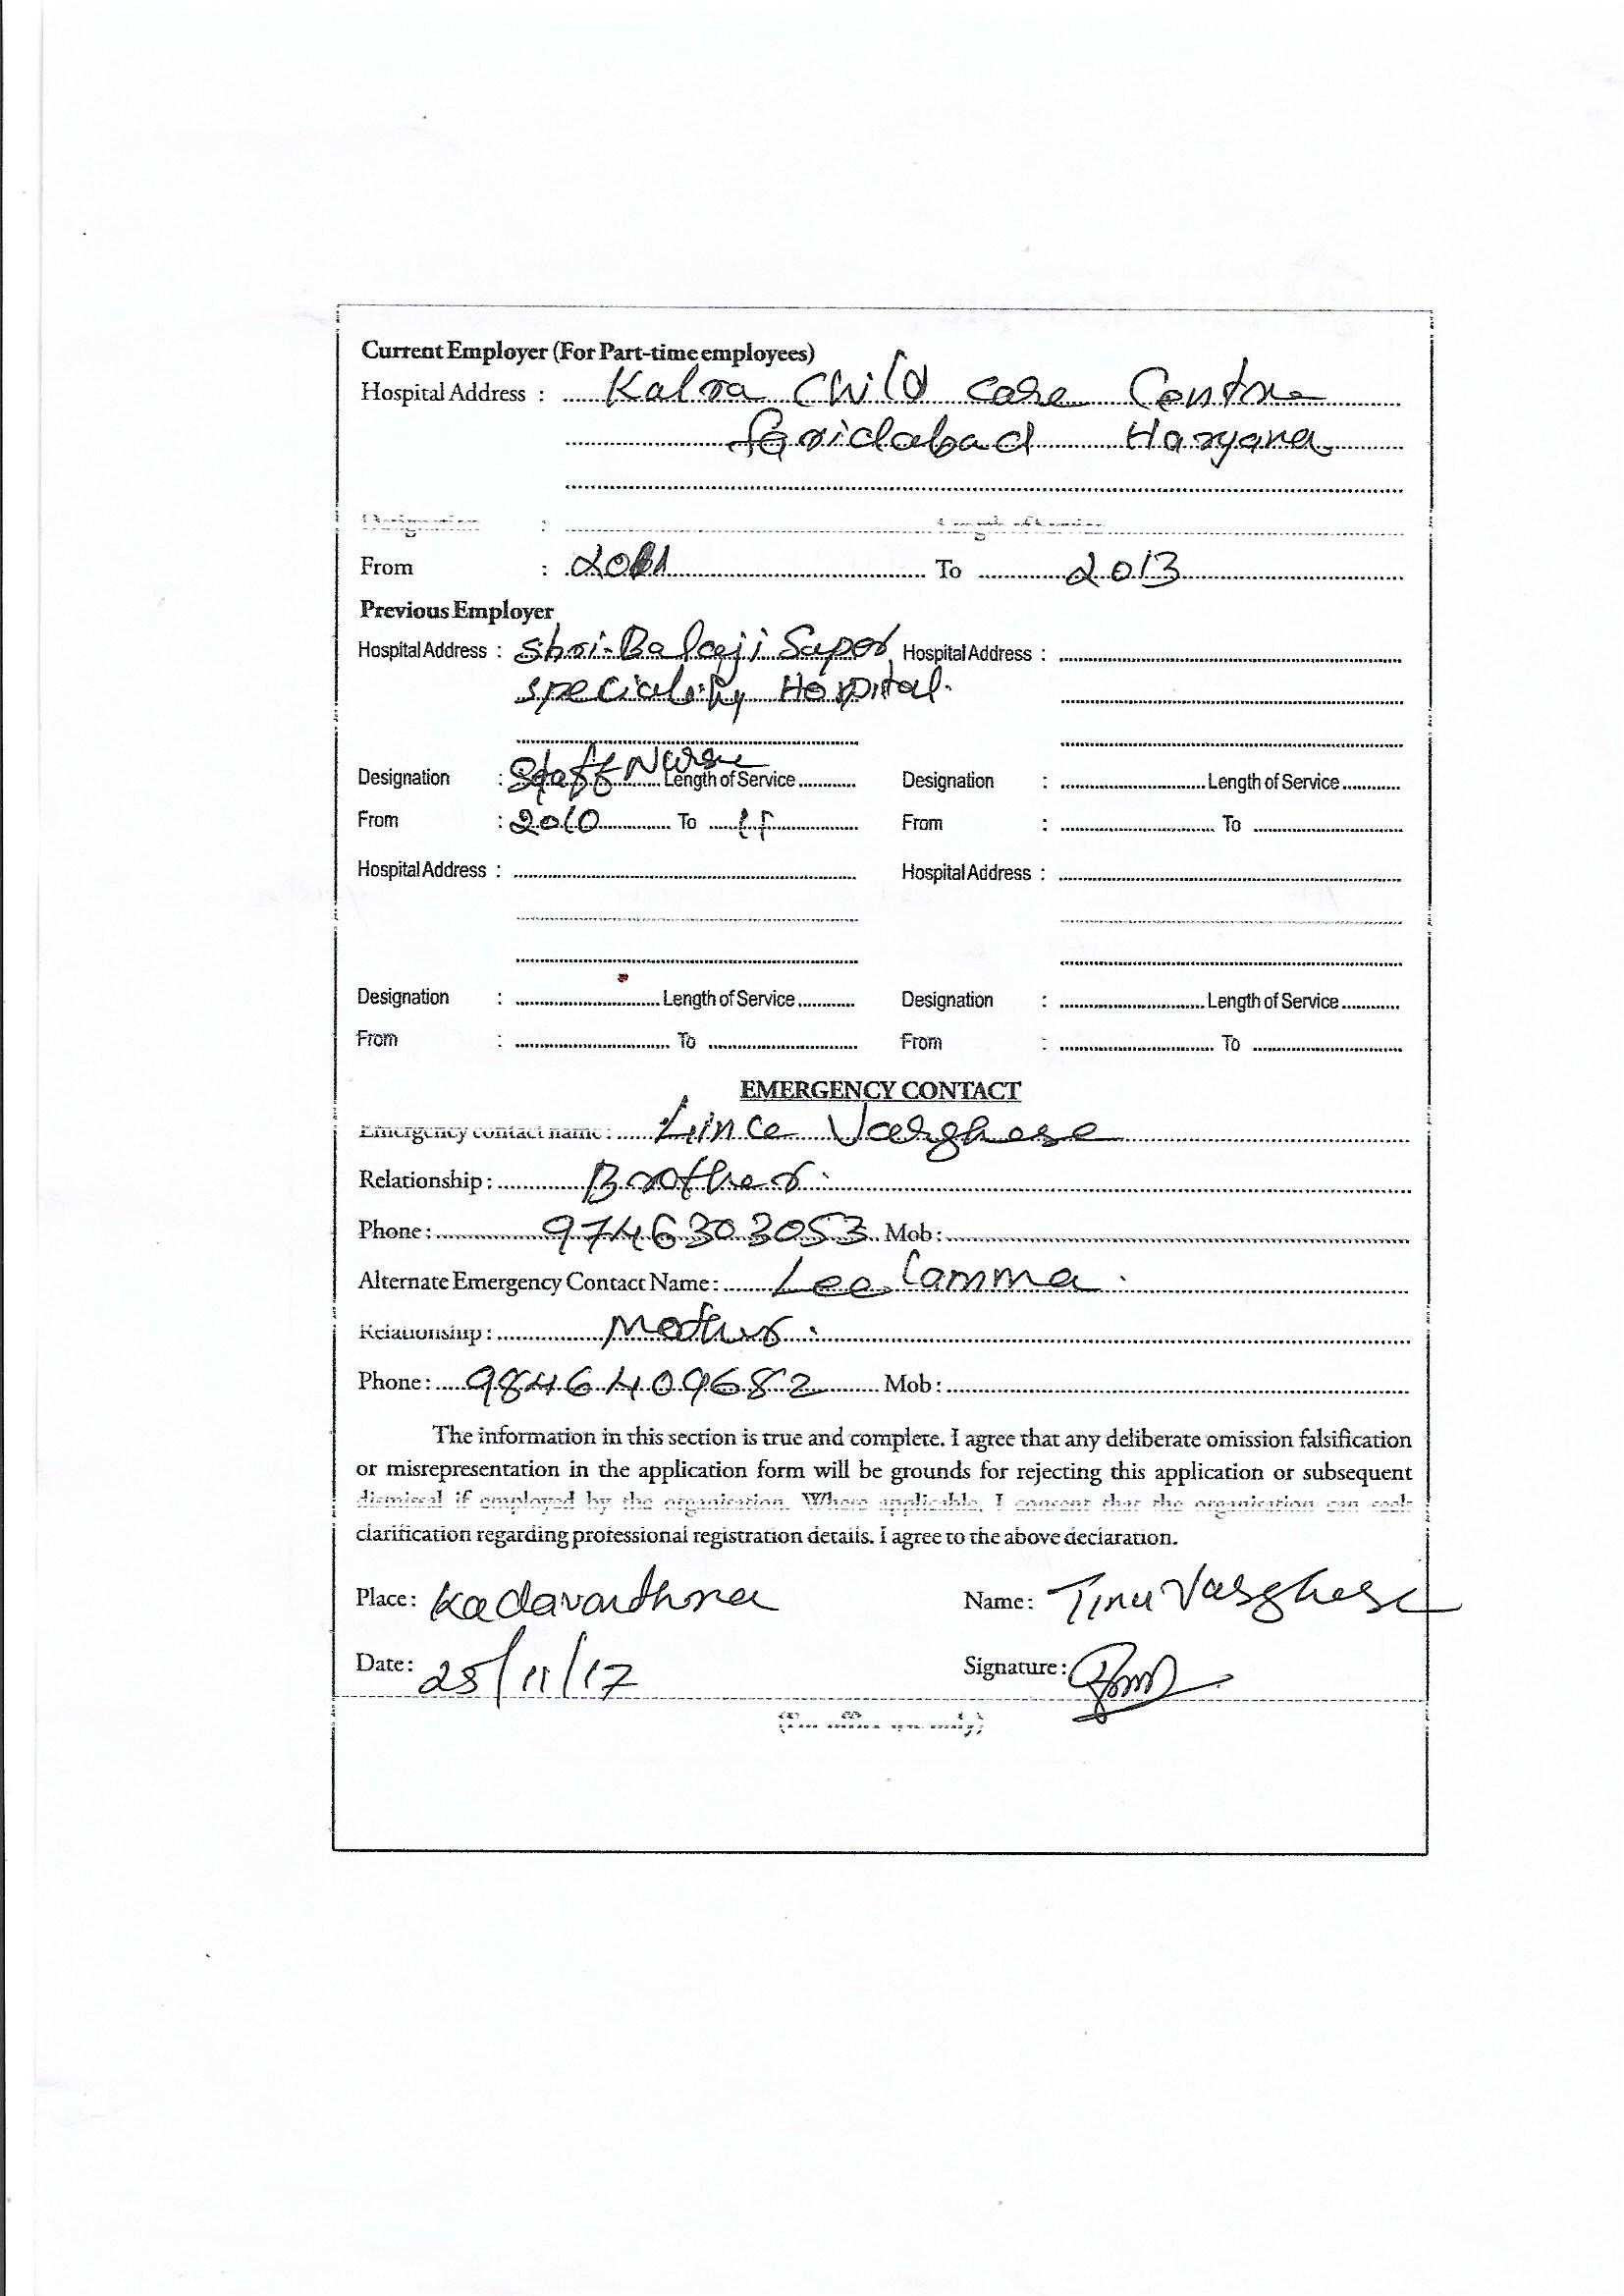 Current Employer (For Part-time employees)
Hospital Address : Kalra Child care Centre
faridabad Haryana
Designation : Length of Service
From : 2011 To 2013
Previous Employer
Hospital Address : Shri-Balaji Super Hospital Address :
speciality Hospital.
Designation : Staff Nurse Length of Service Designation : Length of Service
From : 2010 To 11 From : To
Hospital Address : Hospital Address :
Designation : Length of Service Designation : Length of Service
From : To From : To
EMERGENCY CONTACT
Emergency contact name : Lince Varghese
Relationship : Brother.
Phone : 9746303053 Mob :
Alternate Emergency Contact Name : Leelamma.
Relationship : Mother.
Phone : 9846409682 Mob :
The information in this section is true and complete. I agree that any deliberate omission falsification
or misrepresentation in the application form will be grounds for rejecting this application or subsequent
dismissal if employed by the organisation. Where applicable, I consent that the organisation can seek
clarification regarding professional registration details. I agree to the above declaration.
Place : Kadavanthra Name : Tinu Varghese
Date : 25/11/17 Signature :
(For office use only)